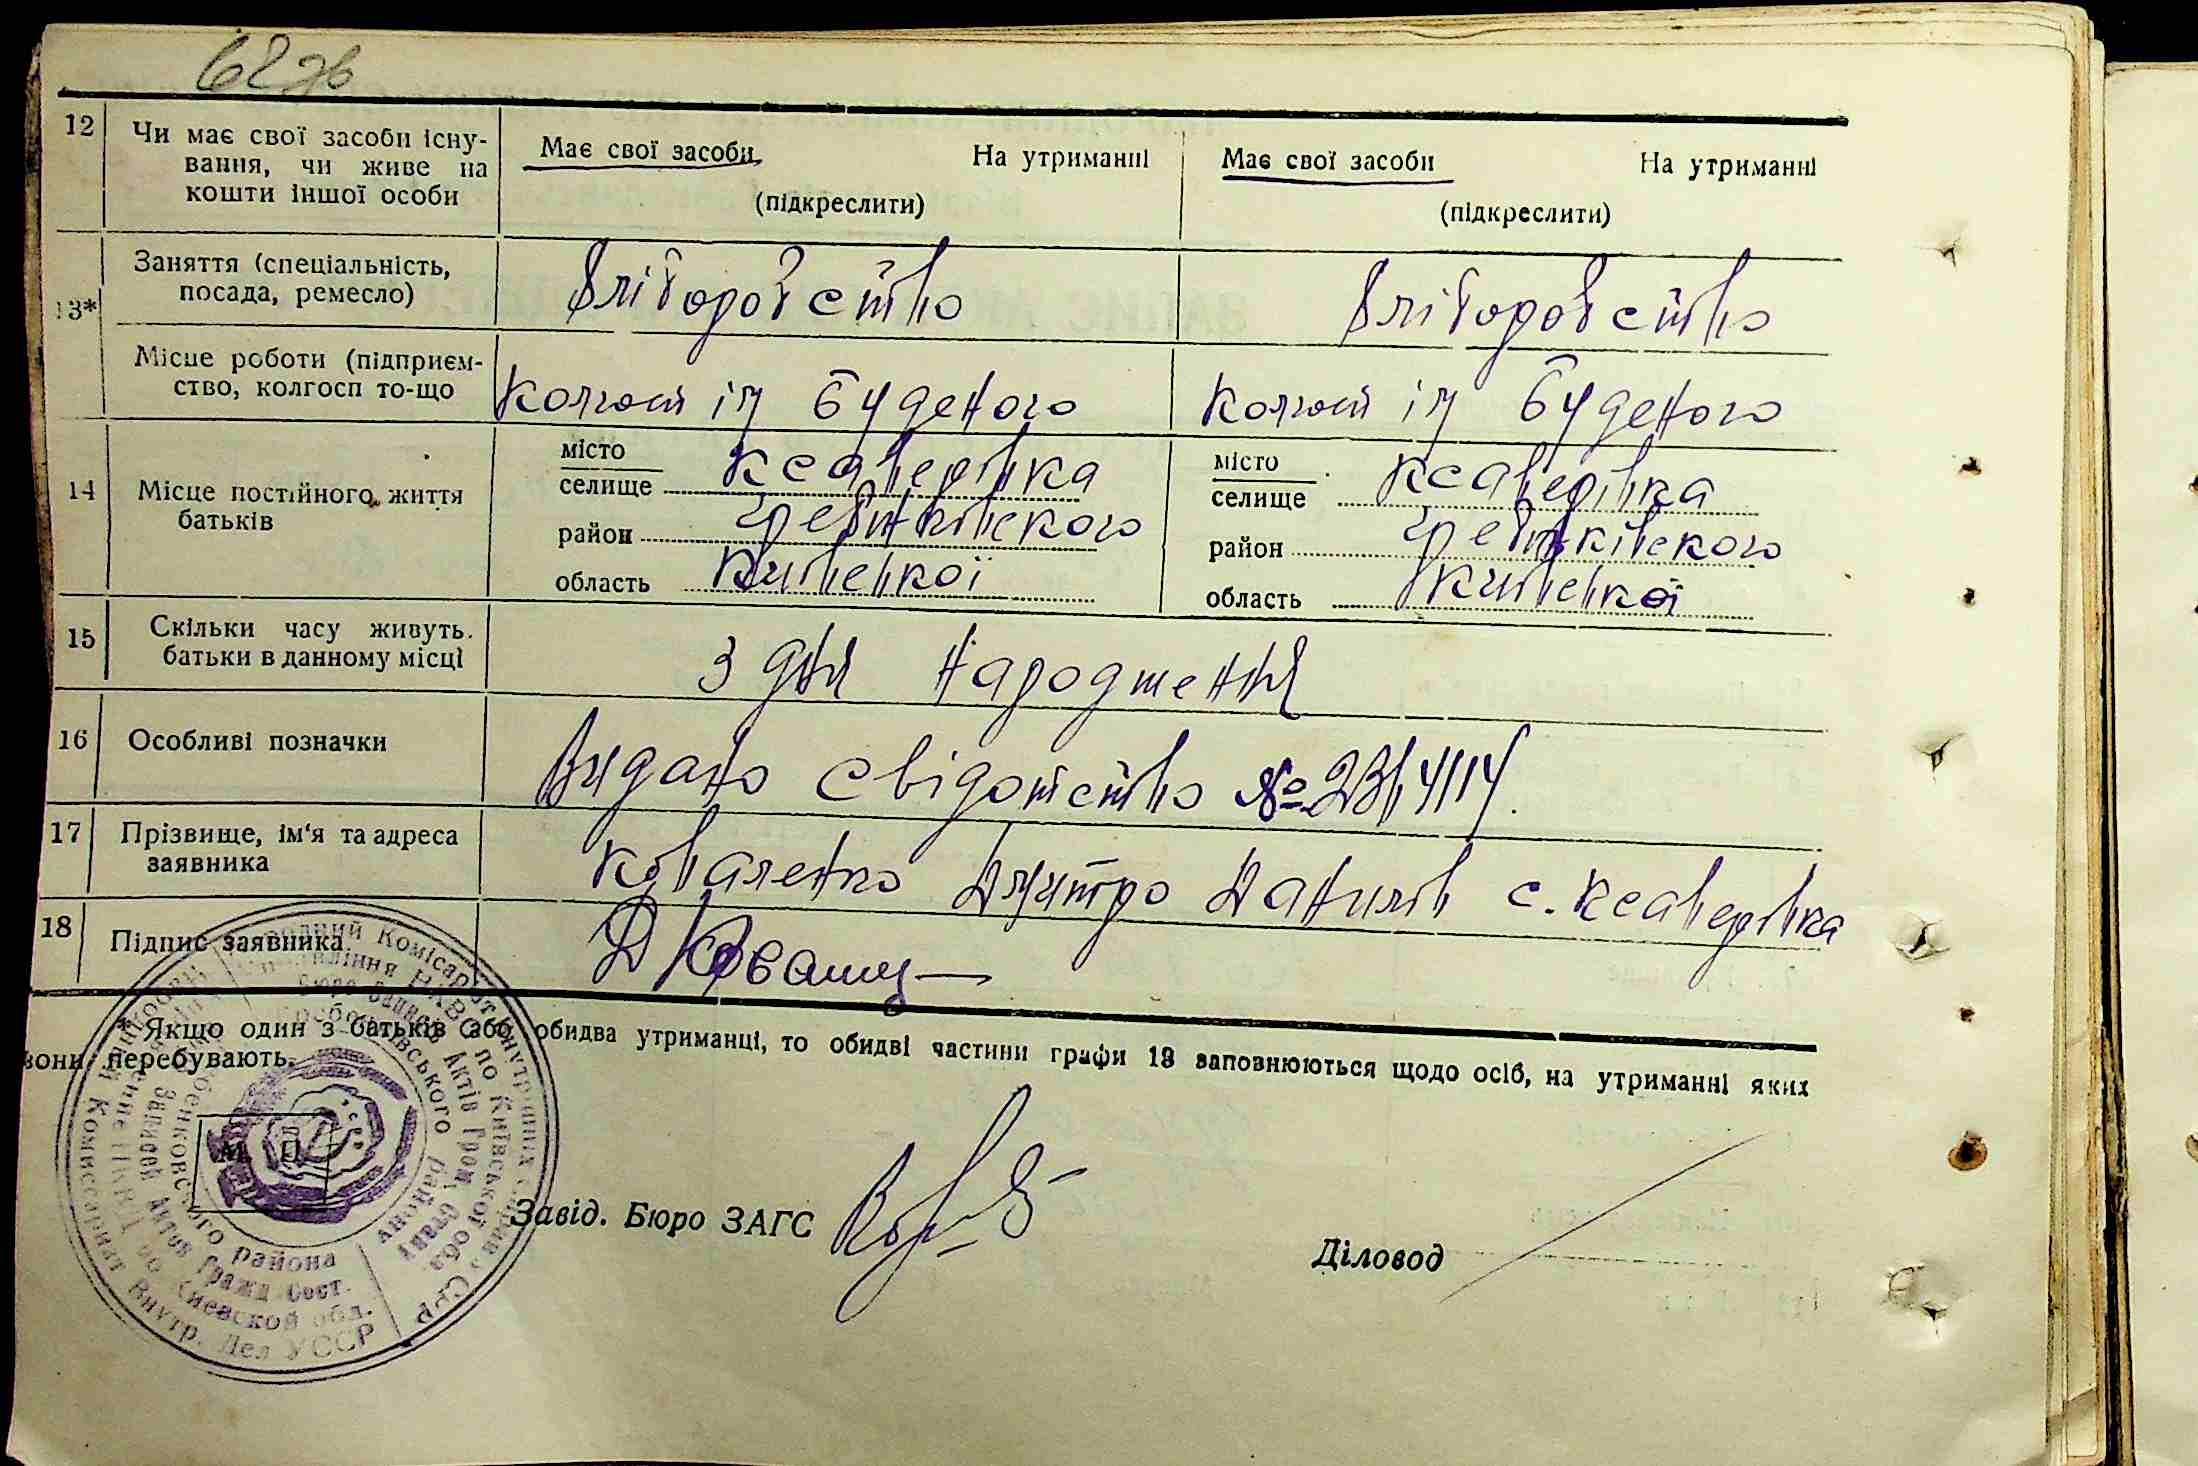 62зв
12 Чи має свої засоби існу-
вання, чи живе на
кошти іншої особи
Має свої засоби На утриманні
(підкреслити)
Має свої засоби На утриманні
(підкреслити)
13* Заняття (спеціальність,
посада, ремесло)
хліборобство
хліборобство
Місце роботи (підприєм-
ство, колгосп то-що
колгосп ім Буденого
колгосп ім Буденого
14 Місце постійного життя
батьків
місто
селище Ксаверівка
район Гребінківського
область Київської
місто
селище Ксаверівка
район Гребінківського
область Київської
15 Скільки часу живуть.
батьки в данному місці
з дня народження
16 Особливі позначки
Видано свідотство №
17 Прізвище, ім'я та адреса
заявника
Коваленко Дмитро Данилів с. Ксаверівка
18 Підпис заявника.
* Якщо один з батьків або обидва утриманці, то обидві частини графи 13 заповнюються щодо осіб, на утриманні яких
вони перебувають.
М. П.
Завід. Бюро ЗАГС
Діловод
Народний Комісаріат Внутрішніх Справ УСРР
Управління НКВС по Київської обл.
Бюро Записів Актів Гром. Стану
Гребінківського району
района
Записей Актов Гражд. Сост.
Киевской обл.
Комиссариат Внутр. Дел УССР